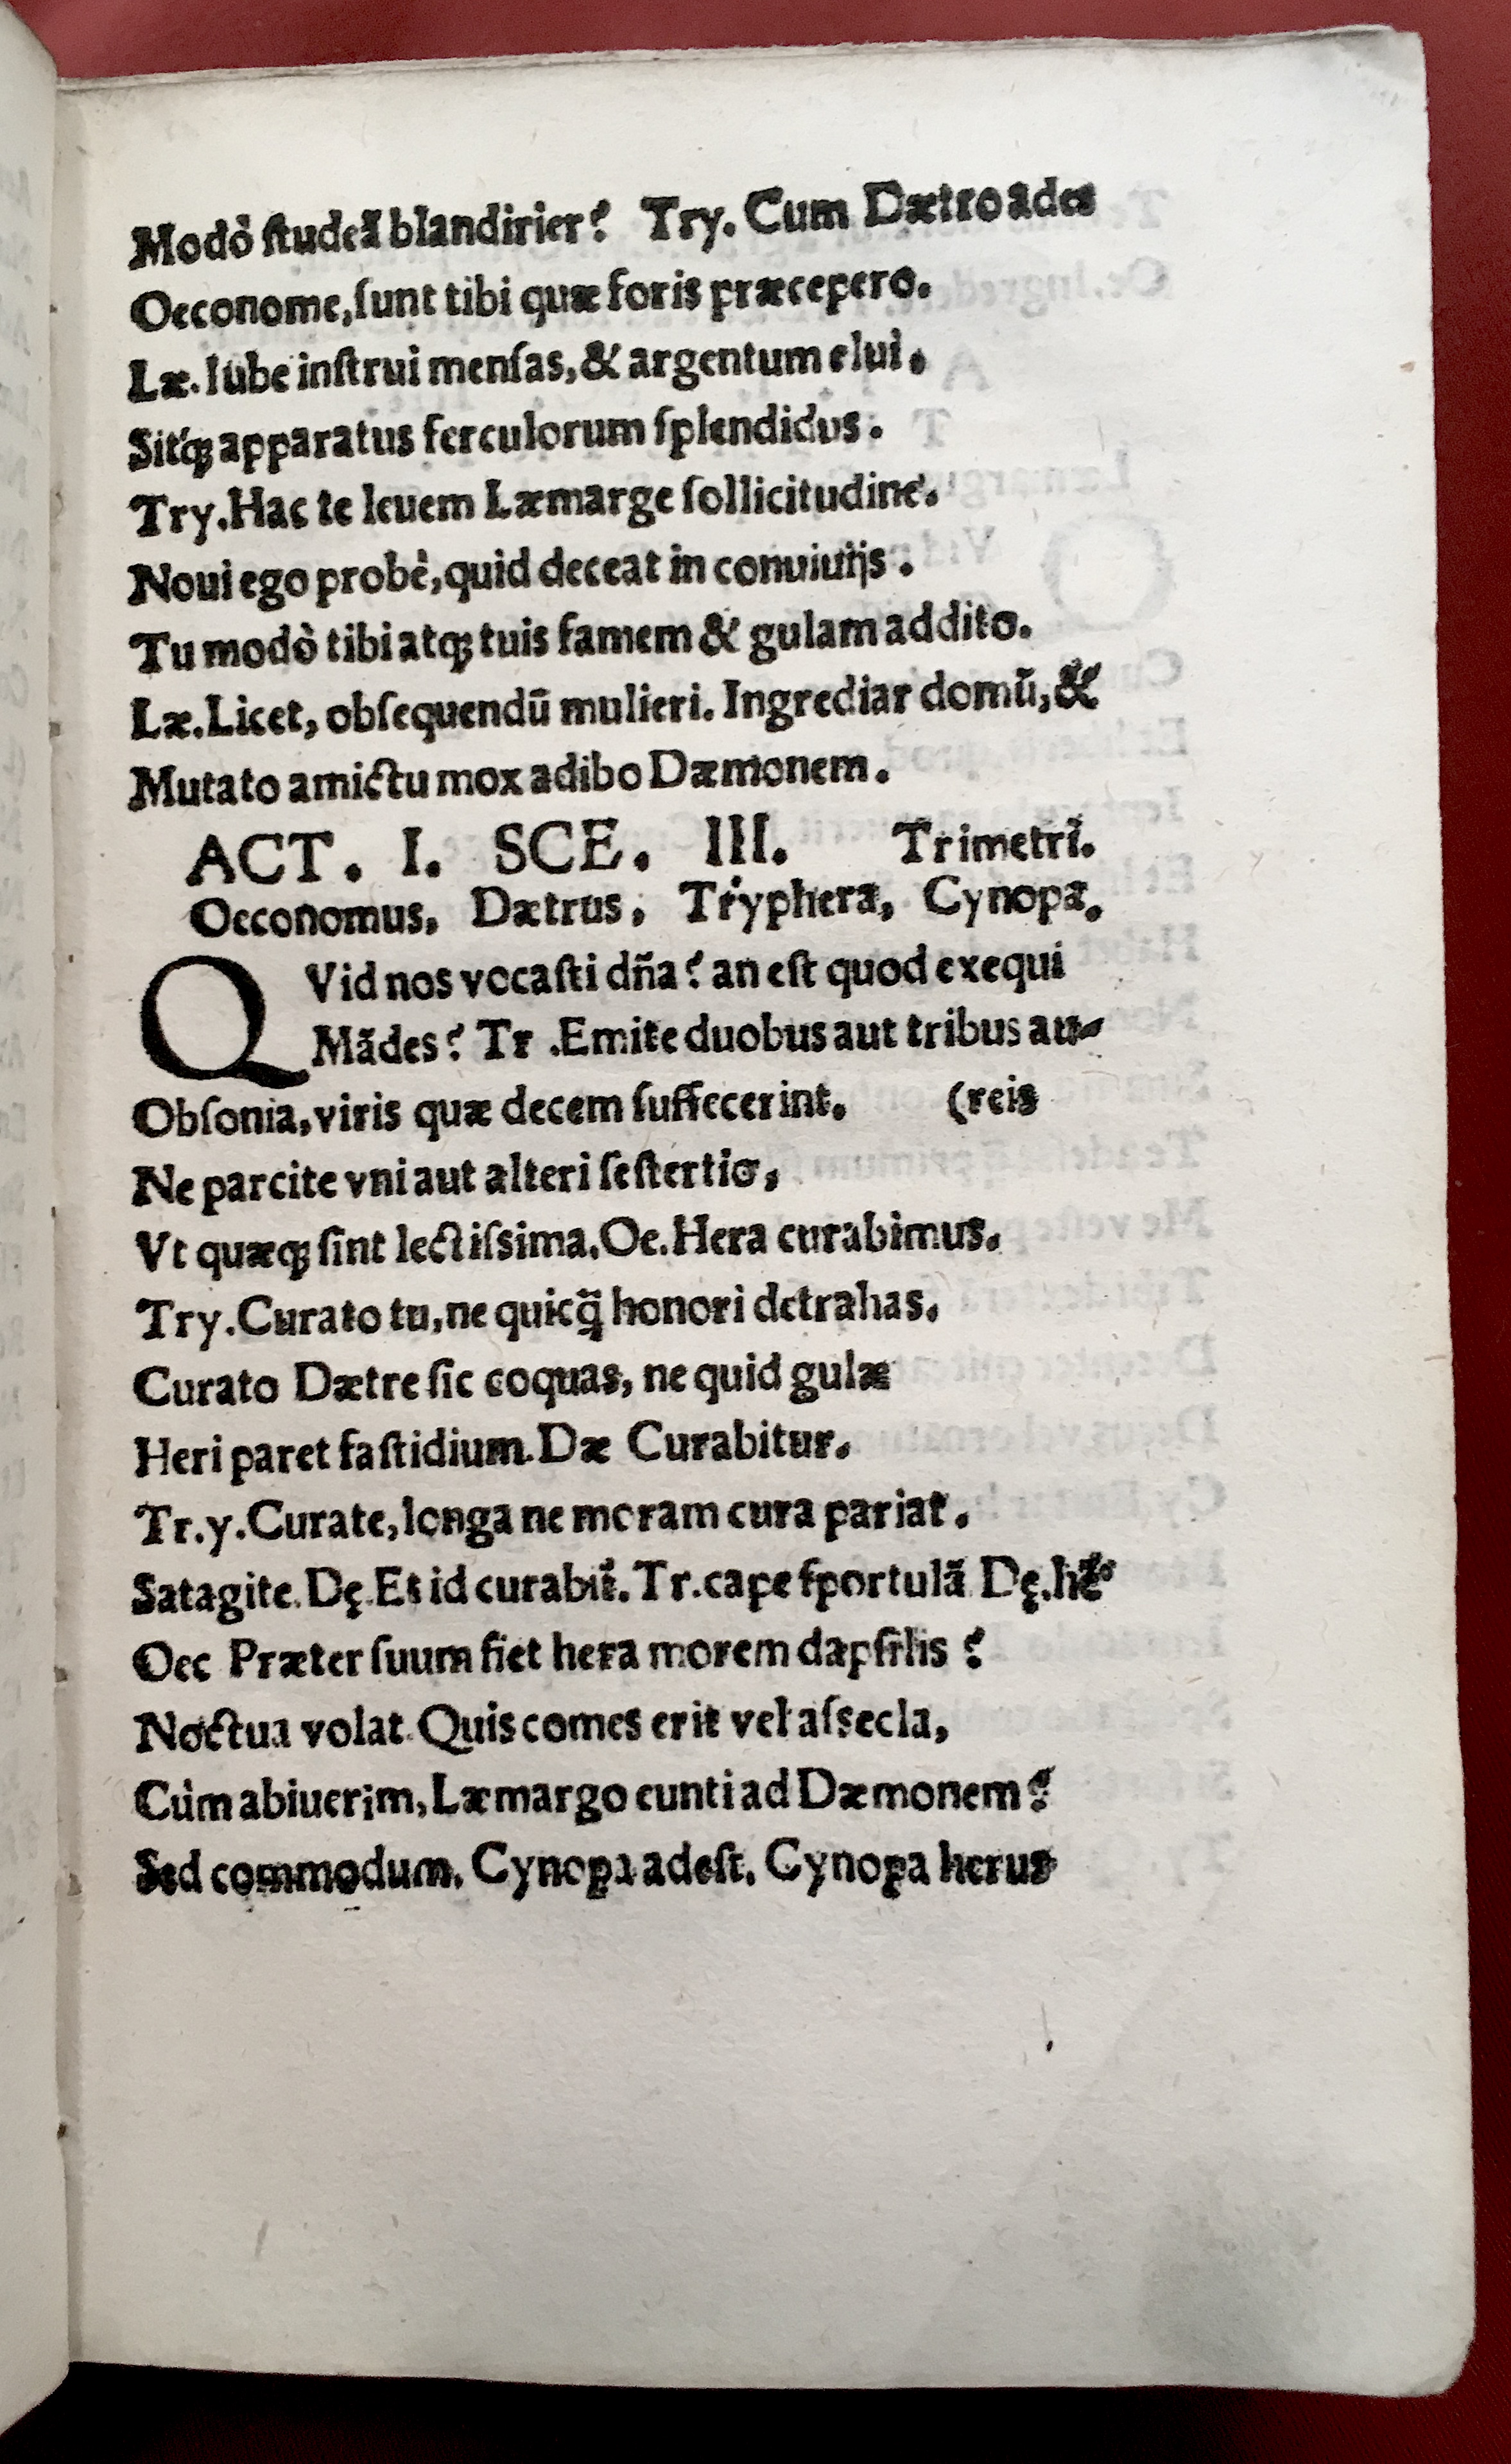 Modò ſtudeã blandirier? Try. Cum Dætro ades
Oeconome, ſunt tibi quæ foris præcepero.
Læ. Iube inſtrui menſas, & argentum elui.
Sitq́ꝫ apparatus ferculorum ſplendidus.
Try. Hac te leuem Læmarge ſollicitudine.
Noui ego probè, quid deceat in conuiuijs.
Tu modò tibi atqꝫ tuis famem & gulam addito.
Læ. Licet, obſequendũ mulieri. Ingrediar domũ, &
Mutato amictu mox adibo Dæmonem.
ACT. I. SCE. III. Trimetri.
Oeconomus, Dætrus, Tryphera, Cynopa.
QVid nos vocaſti dña? an eſt quod exequi
Mãdes? Tr. Emite duobus aut tribus au-
Obſonia, viris quæ decem ſuffecerint. (reis
Ne parcite vni aut alteri ſeſtertio,
Vt quæqꝫ ſint lectiſsima. Oe. Hera curabimus.
Try. Curato tu, ne quicq̃ honori detrahas.
Curato Dætre ſic coquas, ne quid gulæ
Heri paret faſtidium. Dæ Curabitur.
Tr.y. Curate, longa ne moram cura pariat.
Satagite. Dę. Et id curabit̃. Tr. cape ſportulã Dę.
Oec Præter ſuum fiet hera morem dapſilis?
Noctua volat. Quis comes erit vel aſſecla,
Cùm abiuerim, Læmargo eunti ad Dæmonem?
Sed commodum, Cynopa adeſt. Cynopa herus